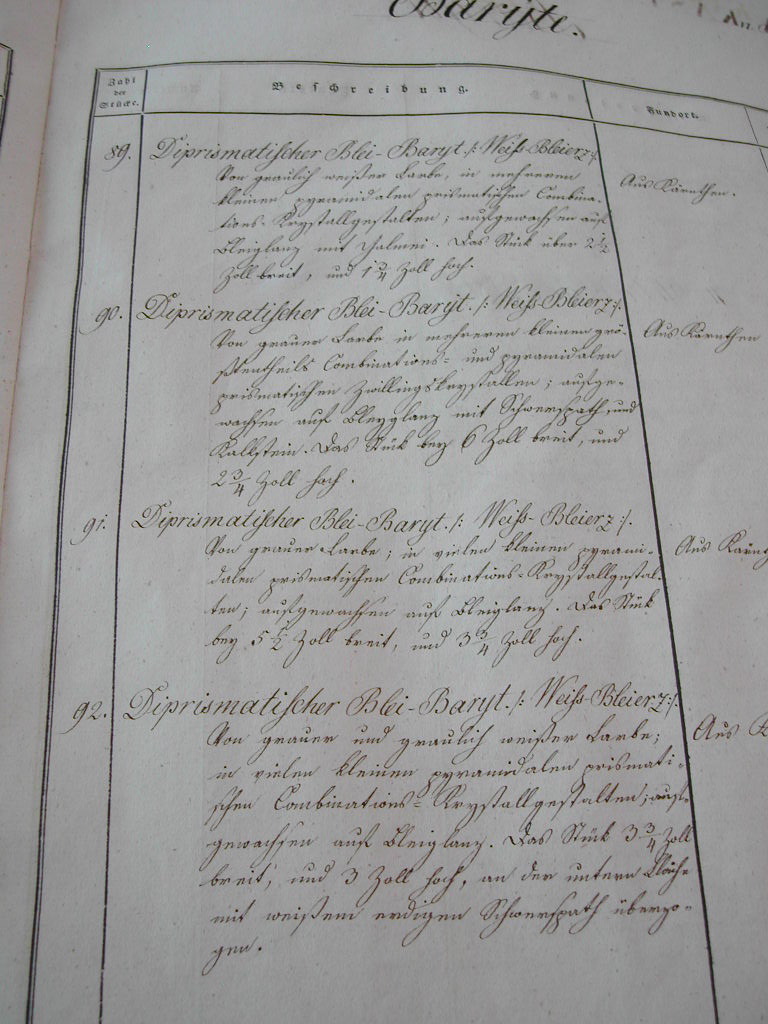 Baryte.
Zahl
der
Stücke.
Beschreibung.
Fundort.
89. Diprismatischer Blei-Baryt /: Weiss-Bleierz :/.
Von graulich weißer Farbe, in mehreren
kleinen pyramidalen prismatischen Combina-
tions-Krystallgestalten; aufgewachsen auf
Bleiglanz mit Galmei. Das Stück über 2 1/2
Zoll breit, und 1 3/4 Zoll hoch.
Aus Kärnthen.
90. Diprismatischer Blei-Baryt. /: Weiss-Bleierz :/.
Von grauer Farbe in mehreren kleinen grö-
ßtentheils Combinations= und pyramidalen
prismatischen Zwillingskrystallen; aufge-
wachsen auf Bleyglanz mit Schwerspath, und
Kalkstein. Das Stück bey 6 Zoll breit, und
2 3/4 Zoll hoch.
Aus Kärnthen
91. Diprismatischer Blei-Baryt. /: Weiss-Bleierz :/.
Von grauer Farbe; in vielen kleinen pyrami-
dalen prismatischen Combinations=Krystallgestal-
ten; aufgewachsen auf Bleiglanz. Das Stück
bey 5 1/2 Zoll breit, und 3 3/4 Zoll hoch.
Aus Kärn
92. Diprismatischer Blei-Baryt. /: Weiss-Bleierz :/.
Von grauer und graulich weißer Farbe;
in vielen kleinen pyramidalen prismati-
schen Combinations=Krystallgestalten; auf-
gewachsen auf Bleiglanz. Das Stück 3 3/4 Zoll
breit, und 3 Zoll hoch, an der untern Fläche
mit weißem erdigen Schwerspath überzo-
gen.
Aus